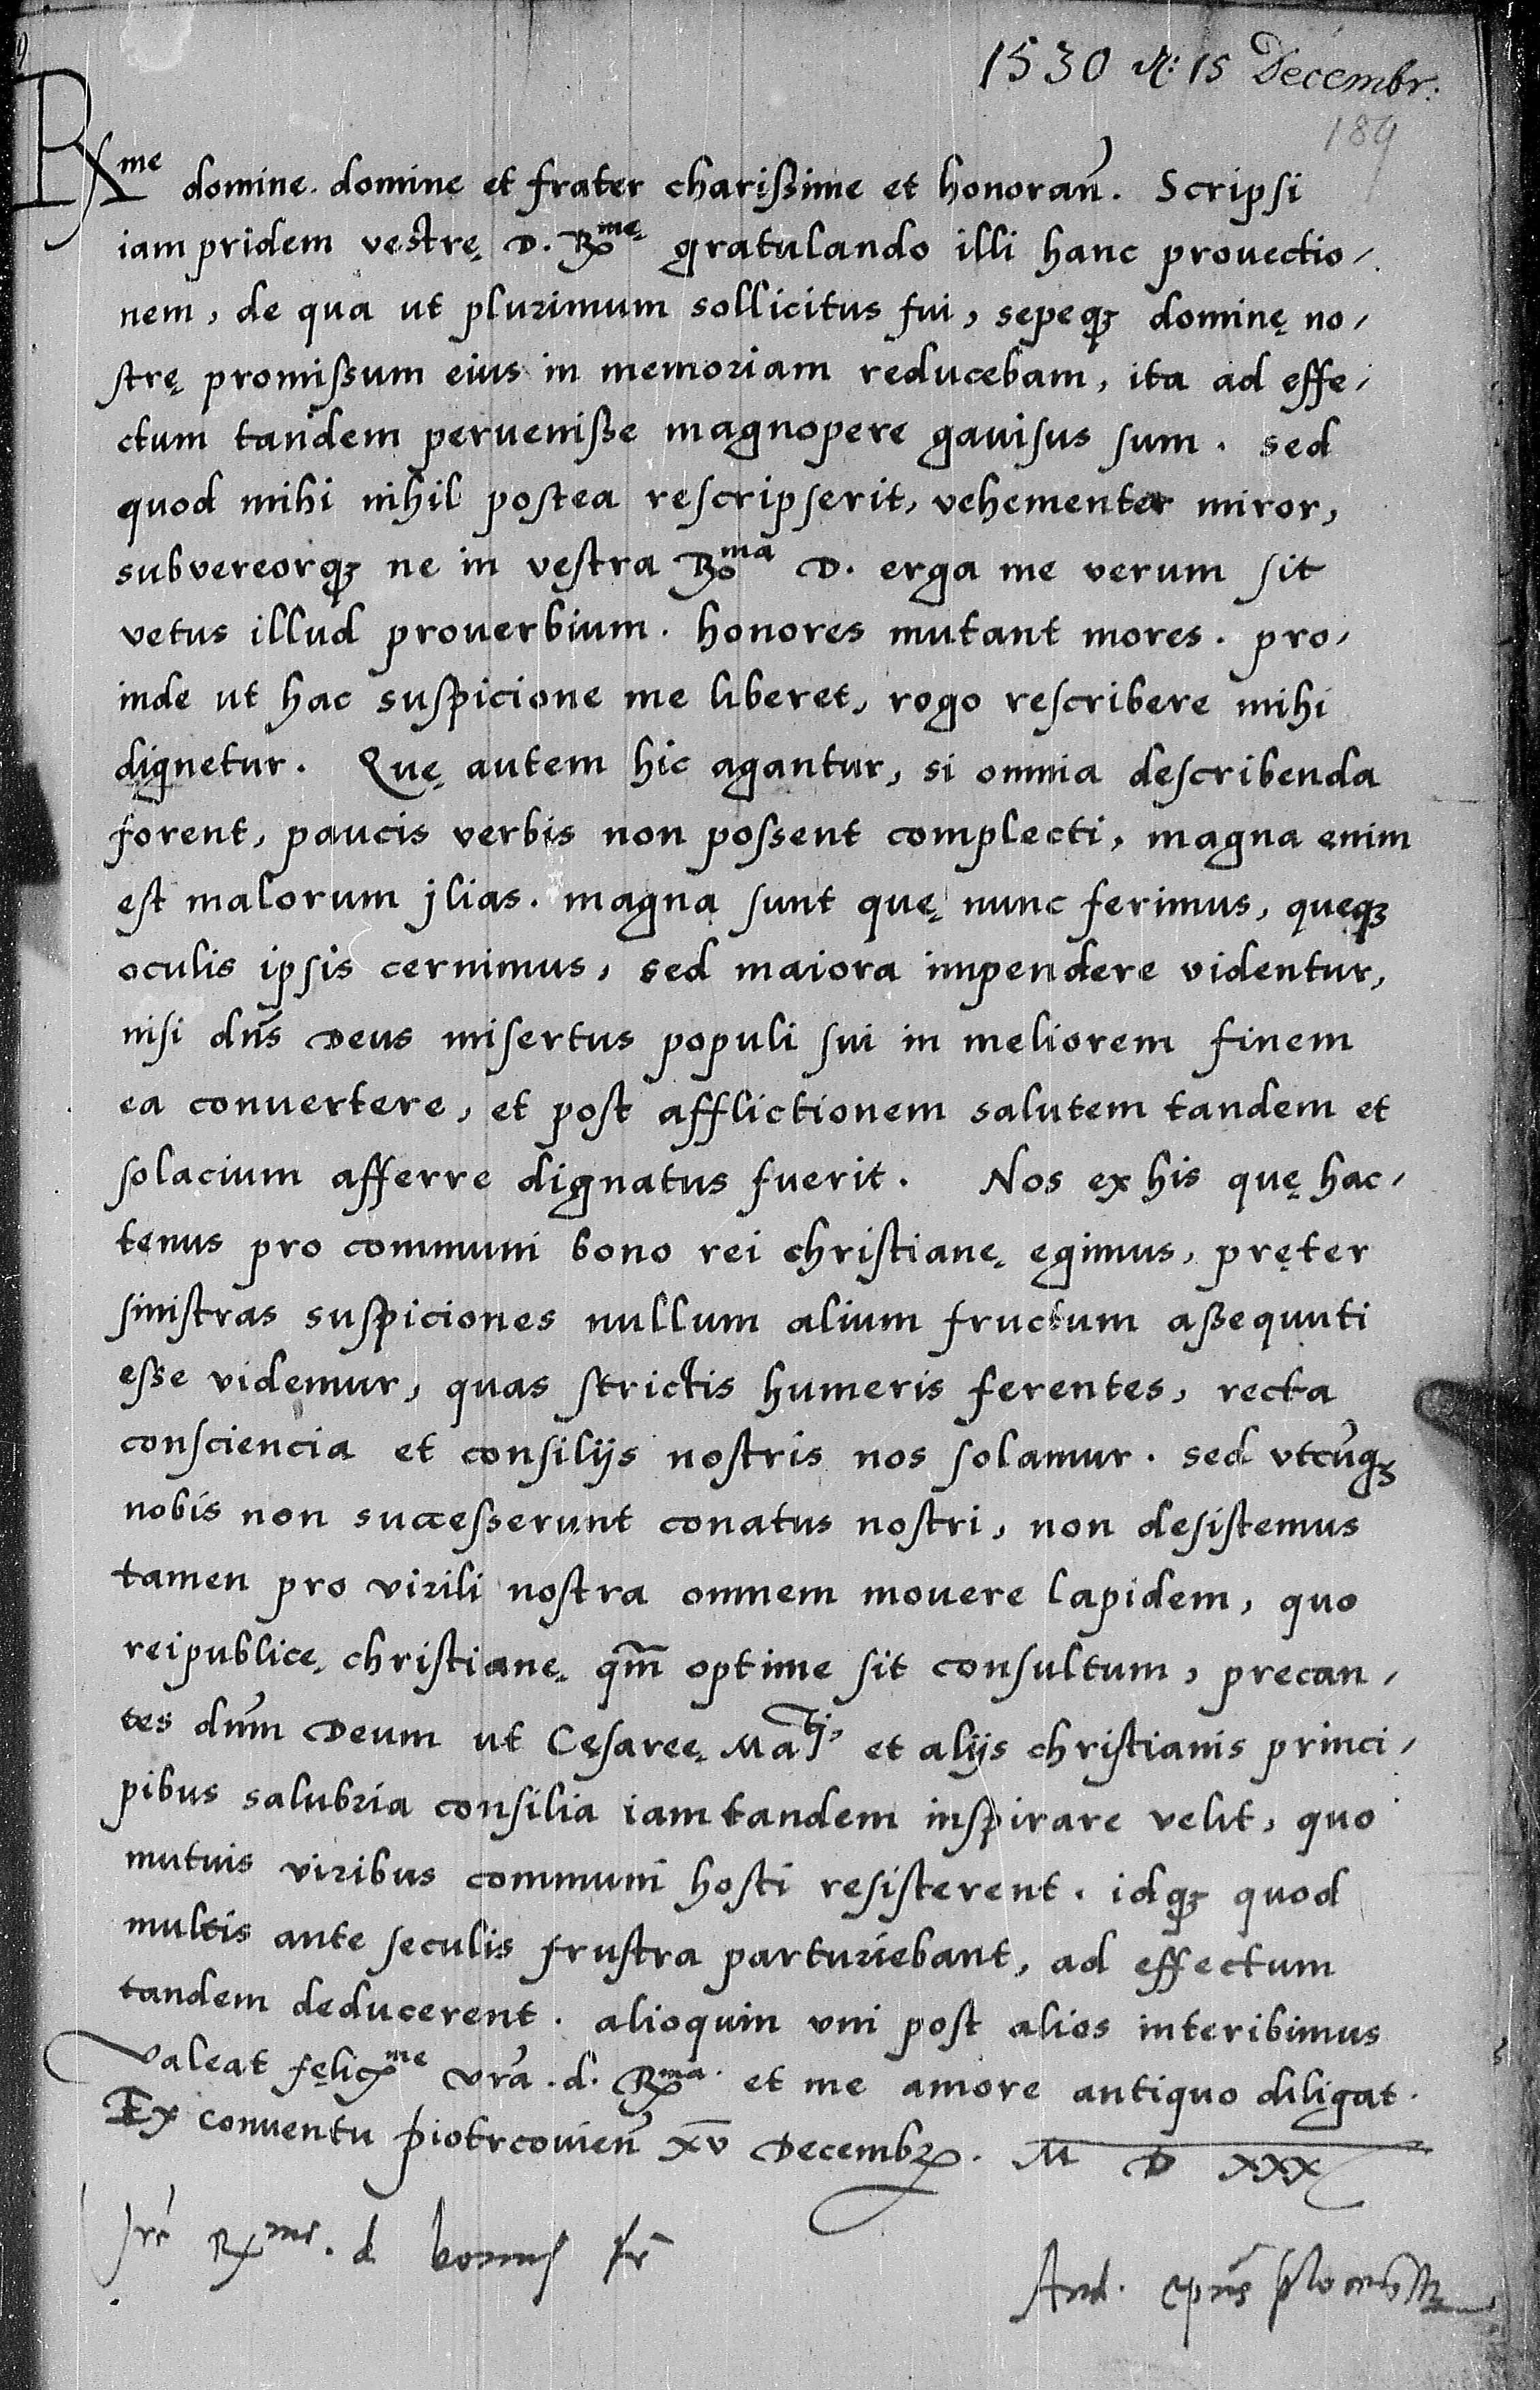 1530 d: 15 Decembr:
189
Rx^me domine. domine et frater charißime et honorañ. Scripsi
iam pridem vestrę D. Rx^mę gratulando illi hanc prouectio-
nem, de qua ut plurimum sollicitus fui, sepeqꝫ dominę no-
strę promißum eius in memoriam reducebam, ita ad effe-
ctum tandem perueniße magnopere gauisus sum. sed
quod mihi nihil postea rescripserit, vehementer miror,
subvereorqꝫ ne in vestra Rx^ma D. erga me verum sit
vetus illud prouerbium. honores mutant mores. pro-
inde ut hac suspicione me liberet, rogo rescribere mihi
dignetur. Quę autem hic agantur, si omnia describenda
forent, paucis verbis non possent complecti, magna enim
est malorum jlias. magna sunt quę nunc ferimus, queqꝫ
oculis ipsis cernimus, sed maiora impendere videntur,
nisi dñs Deus misertus populi sui in meliorem finem
ea convertere, et post afflictionem salutem tandem et
solacium afferre dignatus fuerit. Nos ex his quę hac-
tenus pro communi bono rei christianę egimus, pręter
sinistras suspiciones nullum alium fructum aßequuti
eße videmur, quas strictis humeris ferentes, recta
consciencia et consilijs nostris nos solamur. sed vtcũqꝫ
nobis non succeßerunt conatus nostri, non desistemus
tamen pro virili nostra omnem mouere lapidem, quo
reipublicę christianę qm̃ optime sit consultum, precan-
tes dũm Deum ut Cęsareę Ma^ti et alijs christianis princi-
pibus salubria consilia iam tandem inspirare velit, quo
mutuis viribus communi hosti resisterent. idqꝫ quod
multis ante seculis frustra parturiebant, ad effectum
tandem deducerent. alioquin vni post alios interibimus
Valeat fęlicx^me vrã. d. Rx^ma. et me amore antiquo diligat.
Ex conventu piotrcouieñ xv Decembr. M D XXX
Rx^me. d bonus fr̃
And. ep̃us